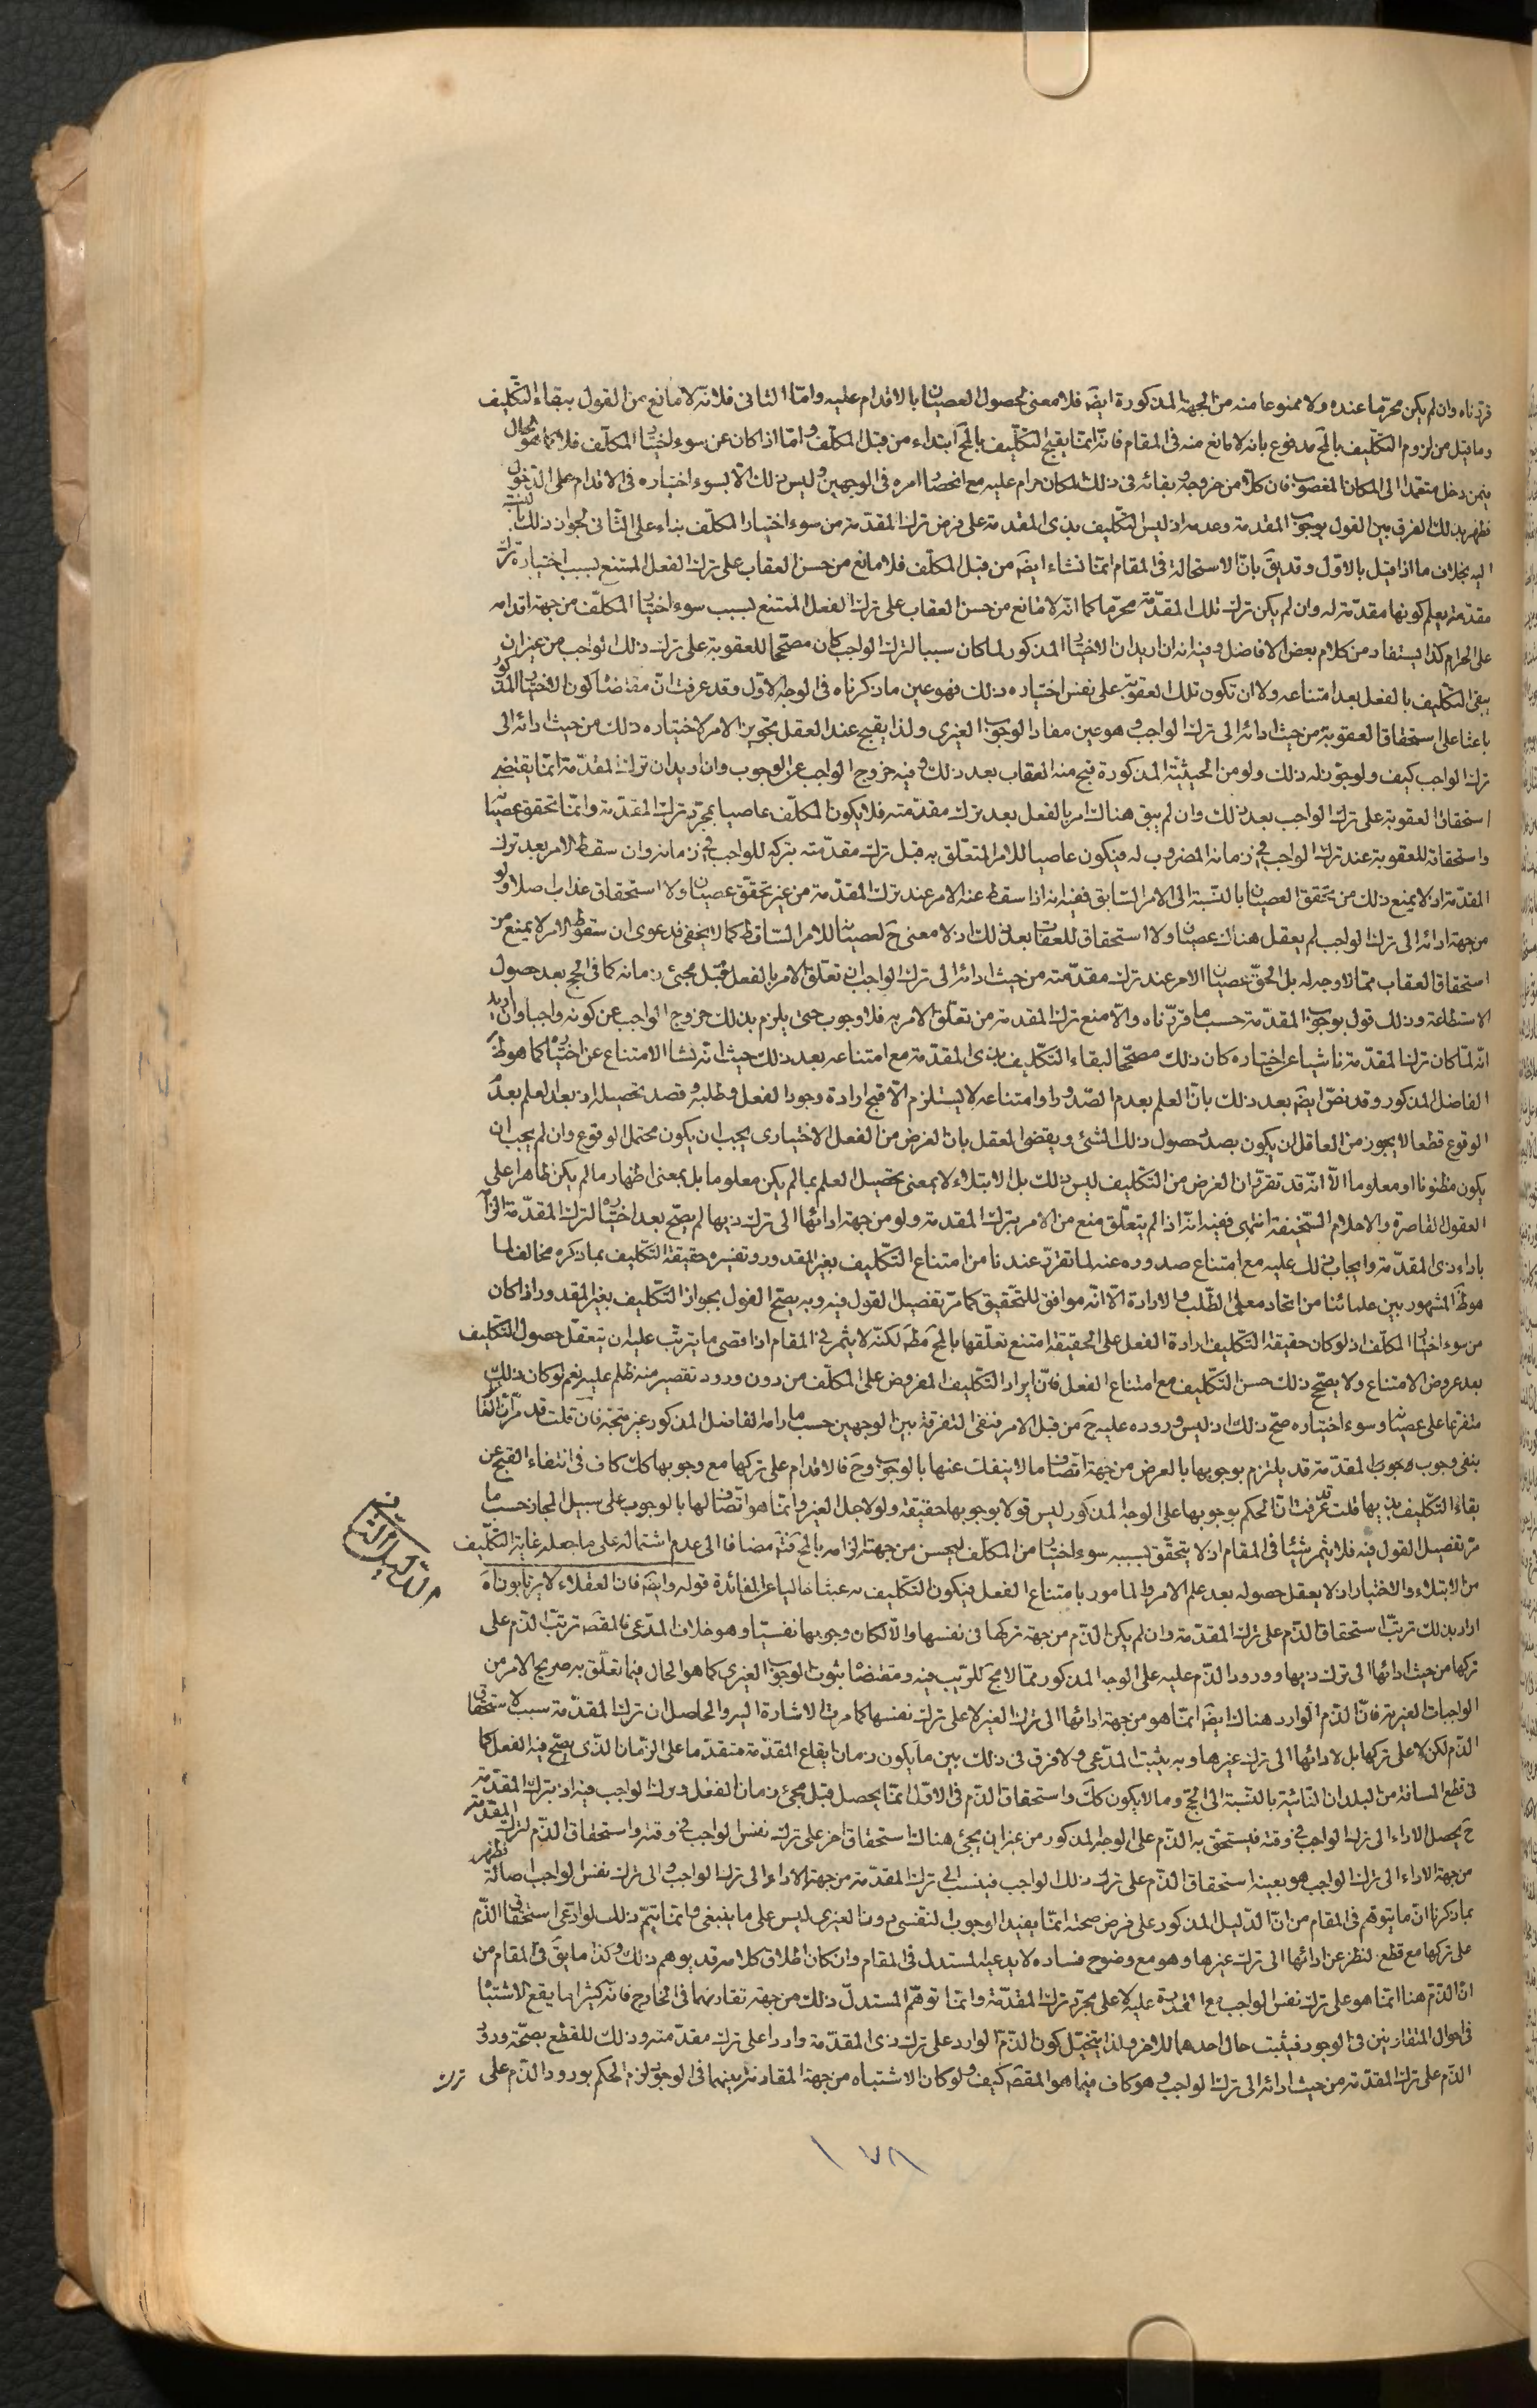 قررناه وان لم يكن محرما عنده ولا ممنوعا منه من الجهة المذكورة ايضَ فلا معنى لحصول العصيان بالاقدام عليه وامّا الثانى فلانّه لا مانع من القول ببقاء التكليف
وما قيل من لزوم التكليف بالمح مدفوع بانه لا مانع منه فى المقام فانّه انّما يقبح التكليف بالمح ابتداء من قبل المكلّف وامّا اذا كان عن سوء اختيار المكلّف فلا كما هو الحال
فيمن دخل متعمدا الى المكان المغصوب فان كلا من خروجه وبقائه فى ذلك المكان حرام عليه مع انحصار امره فى الوجهين وليس ذلك الا لسوء اختياره فى الاقدام على الدخول
فظهر بذلك الفرق بين القول بوجوب المقدمة وعدمه اذ ليس التكليف بذى المقدمة على فرض ترك المقدمة من سوء اختيار المكلّف بناء على الثانى لجواز ذلك بالنسبة
اليه بخلاف ما اذا قيل بالاوّل وقد يقَ بانّ الاستحالة فى المقام انّما نشاء ايضَ من قبل المكلّف فلا مانع من حسن العقاب على ترك الفعل الممتنع بسبب اختياره ترك
مقدمة يعلم كونها مقدمة له وان لم يكن ترك تلك المقدّمة محرّما كما انّه لا مانع من حسن العقاب على ترك الفعل الممتنع بسبب سوء اختيار المكلّف من جهة اقدامه
على الحرام كذا يستفاد من كلام بعض الافاضل وفيه انه ان اريد ان الاختيار المذكور لما كان سببا لترك الواجب كان مصححا للعقوبة على ترك ذلك الواجب من غير ان
يبقى التكليف بالفعل بعد امتناعه ولا ان تكون تلك العقوبة على نفس اختياره ذلك فهو عين ما ذكرناه فى الوجه الاوّل وقد عرفت انّ مقتضاه كون الاختيار المذكور
باعثا على استحقاق العقوبة من حيث ادائه الى ترك الواجب وهو عين مفاد الوجوب الغيرى ولذا يقبح عند العقل تجويز الامر لاختياره ذلك من حيث ادائه الى
ترك الواجب كيف ولو جوّز له ذلك ولو من الحيثيّة المذكورة قبح منه العقاب بعد ذلك وفيه خروج الواجب عن الوجوب وان اريد ان ترك المقدّمة انّما يقتضى
استحقاق العقوبة على ترك الواجب بعد ذلك وان لم يبق هناك امر بالفعل بعد ترك مقدمته فلا يكون المكلّف عاصيا بمجرّد ترك المقدّمة وانّما تحقق عصيانه
واستحقاقه للعقوبة عند ترك الواجب فى زمانه المضروب له فيكون عاصيا للامر المتعلق به قبل ترك مقدّمته بتركه للواجب فى زمانه وان سقط الامر بعد ترك
المقدّمة اذ لا يمنع ذلك من تحقق العصيان بالنسبة الى الامر السابق ففيه انه اذا سقط عنه الامر عند ترك المقدّمة من غير تحقّق عصيان ولا استحقاق عذاب اصلا ولو
من جهة ادائه الى ترك الواجب لم يعقل هناك عصيان ولا استحقاق للعقاب بعد ذلك اذ لا معنى حَ لعصيان للامر الساقط كما لا يخفى فدعوى ان سقوط الامر لا يمنع من
استحقاق العقاب ممّا لا وجه له بل الحقّ عصيان الامر عند ترك مقدّمته من حيث ادائه الى ترك الواجب ان تعلّق الامر بالفعل قبل مجئ زمانه كما فى الحج بعد حصول
الاستطاعة وذلك قول بوجوب المقدّمة حسب ما قررناه والّا منع ترك المقدمة من تعلّق الامر به فلا وجوب حتى يلزم بذلك خروج الواجب عن كونه واجبا وان اريد
انّه لمّا كان ترك المقدّمة ناشيا عن اختياره كان ذلك مصحّحا لبقاء التكليف بذى المقدّمة مع امتناعه بعد ذلك حيث انّه نشا الامتناع عن اختياره كما هو ظَ
الفاضل المذكور وقد نصّ ايضَ بعد ذلك بانّ العلم بعدم الصّدور او امتناعه لا يستلزم الّا قبح ارادة وجود الفعل وطلبه وقصد تحصيله اذ بعد العلم بعدم
الوقوع قطعا لا يجوز من العاقل ان يكون بصدد حصول ذلك الشئ ويقضى العقل بان الغرض من الفعل الاختيارى يجب ان يكون محتمل الوقوع وان لم يجب ان
يكون مظنونا او معلوما الّا انّه قد تقرّر ان الغرض من التكليف ليس ذلك بل الابتلاء لا بمعنى تحصيل العلم بما لم يكن معلوما بل بمعنى اظهار ما لم يكن ظاهرا على
العقول القاصرة والاحلام السّخيفة انتهى ففيه انّه اذا لم يتعلّق منع من الامر بترك المقدمة ولو من جهة ادائها الى ترك ذيها لم يصحّ بعد اختياره لترك المقدّمة الزامه
باداء ذى المقدّمة وايجاب ذلك عليه مع امتناع صدوره عنه لما تقرّر عندنا من امتناع التّكليف بغير المقدور وتفسيره حقيقة التّكليف بما ذكره مخالف لما
هو ظَ المشهور بين علمائنا من اتحاد معنى الطّلب والارادة الّا انّه موافق للتحقيق كما مرّ تفصيل القول فيه وبه يصحّ القول بجواز التّكليف بغير المقدور اذا كان
من سوء اختيار المكلّف اذ لو كان حقيقة التّكليف ارادة الفعل على الحقيقة امتنع تعلّقها بالمح مطَ لكنّه لا يثمر فى المقام اذ اقصى ما يترتّب عليه ان يتعقّل حصول التكليف
بعد عروض الامتناع ولا يصحّح ذلك حسن التّكليف مع امتناع الفعل فانّ ايراد التّكليف المفروض على المكلّف من دون ورود تقصير منه ظلم عليه نعم لو كان ذلك
متفرعا على عصيانه وسوء اختياره صحّ ذلك اذ ليس وروده عليه حَ من قبل الامر فنفى التفرقة بين الوجهين حسب ما رامه الفاضل المذكور غير متّجه فان قلت قد مرّ انّ القائل
بنفى وجوب المقدّمة قد يلتزم بوجوبها بالعرض من جهة اتّصاف ما لا ينفك عنها بالوجوب وحَ فالاقدام على تركها مع وجوبها كك كاف فى انتفاء القبح عن
بقاء التّكليف بذيها قلت قد عرفت انّ الحكم بوجوبها على الوجه المذكور ليس قولا بوجوبها حقيقة ولو لاجل الغير وانّما هو اتّصاف لها بالوجوب على سبيل المجاز حسب ما
مرّ تفصيل القول فيه فلا يثمر شيئا فى المقام اذ لا يتحقّق بسببه سوء اختيار من المكلّف ليحسن من جهته الزامه بالمح فتَه مضافا الى عدم اشتماله على ما جعله غاية التكليف
من الابتلاء والاختبار اذ لا يعقل حصوله بعد علم الامر والمامور بامتناع الفعل فيكون التكليف به عبثا خاليا عن الفائدة قوله وايضَ فان العقلاء لا يرتابون اهَ
الدّليل الثّانى
اراد بذلك ترتّب استحقاق الذّم على ترك المقدّمة وان لم يكن الذّم من جهة تركها فى نفسها والّا لكان وجوبها نفسيّا وهو خلاف المدّعى فالمقصَ ترتّب الذّم على
تركها من حيث ادائها الى ترك ذيها وورود الذّم عليه على الوجه المذكور ممّا لا مجَ للرّيب فيه ومقتضاه ثبوت الوجوب الغيرى كما هو الحال فيما تعلّق به صريح الامر من
الواجبات الغيرية فانّ الذّم الوارد هناك ايضَ انّما هو من جهة ادائها الى ترك الغير لا على ترك نفسها كما مرت الاشارة اليه والحاصل ان ترك المقدّمة سبب لاستحقاق
الذّم لكن لا على تركها بل لادائها الى ترك غيرها وبه يثبت المدّعى ولا فرق فى ذلك بين ما يكون زمان ايقاع المقدّمة متقدّما على الزّمان الّذى يصحّ فيه الفعل كما
فى قطع المسافة من البلدان النّائية بالنّسبة الى الحجّ وما لا يكون ككَ واستحقاق الذّم فى الاوّل انّما يحصل قبل مجئ زمان الفعل وترك الواجب فيه اذ بترك المقدّمة
حَ يحصل الاداء الى ترك الواجب فى وقته فيستحق به الذّم على الوجه المذكور من غير ان يجئ هناك استحقاق اخر على ترك نفس الواجب فى وقته واستحقاق الذّم لترك المقدّمة
من جهة الاداء الى ترك الواجب هو بعينه استحقاق الذّم على ترك ذلك الواجب فينسب الى ترك المقدّمة من جهة الاداء الى ترك الواجب والى ترك نفس الواجب اصالة فظهر
بما ذكرنا انّ ما يتوهّم فى المقام من انّ الدّليل المذكور على فرض صحته انّما يفيد الوجوب النفسى دون الغيرى ليس على ما ينبغى وانّما يتمّ ذلك لو ادّعى استحقاق الذّم
على تركها مع قطع النظر عن ادائها الى ترك غيرها وهو مع وضوح فساده لا يدعيه المستدل فى المقام وان كان اطلاق كلامه قد يوهم ذلك وكذا ما يقَ فى المقام من
انّ الذّم هنا انّما هو على ترك نفس الواجب مع القدرة عليه لا على مجرّد ترك المقدّمة وانّما توهّم المستدلّ ذلك من جهة تقارنهما فى الخارج فانّه كثيرا ما يقع الاشتباه
فى احوال المتقارنين فى الوجود فيثبت حال احدهما للاخر ولذا يتخيّل كون الذّم الوارد على ترك ذى المقدّمة واردا على ترك مقدّمته وذلك للقطع بصحّة ورود
الذّم على ترك المقدّمة من حيث ادائه الى ترك الواجب وهو كاف فيما هو المقصَ كيف ولو كان الاشتباه من جهة المقارنة بينهما فى الوجود لزم الحكم بورود الذّم على
ترك
١٧٨